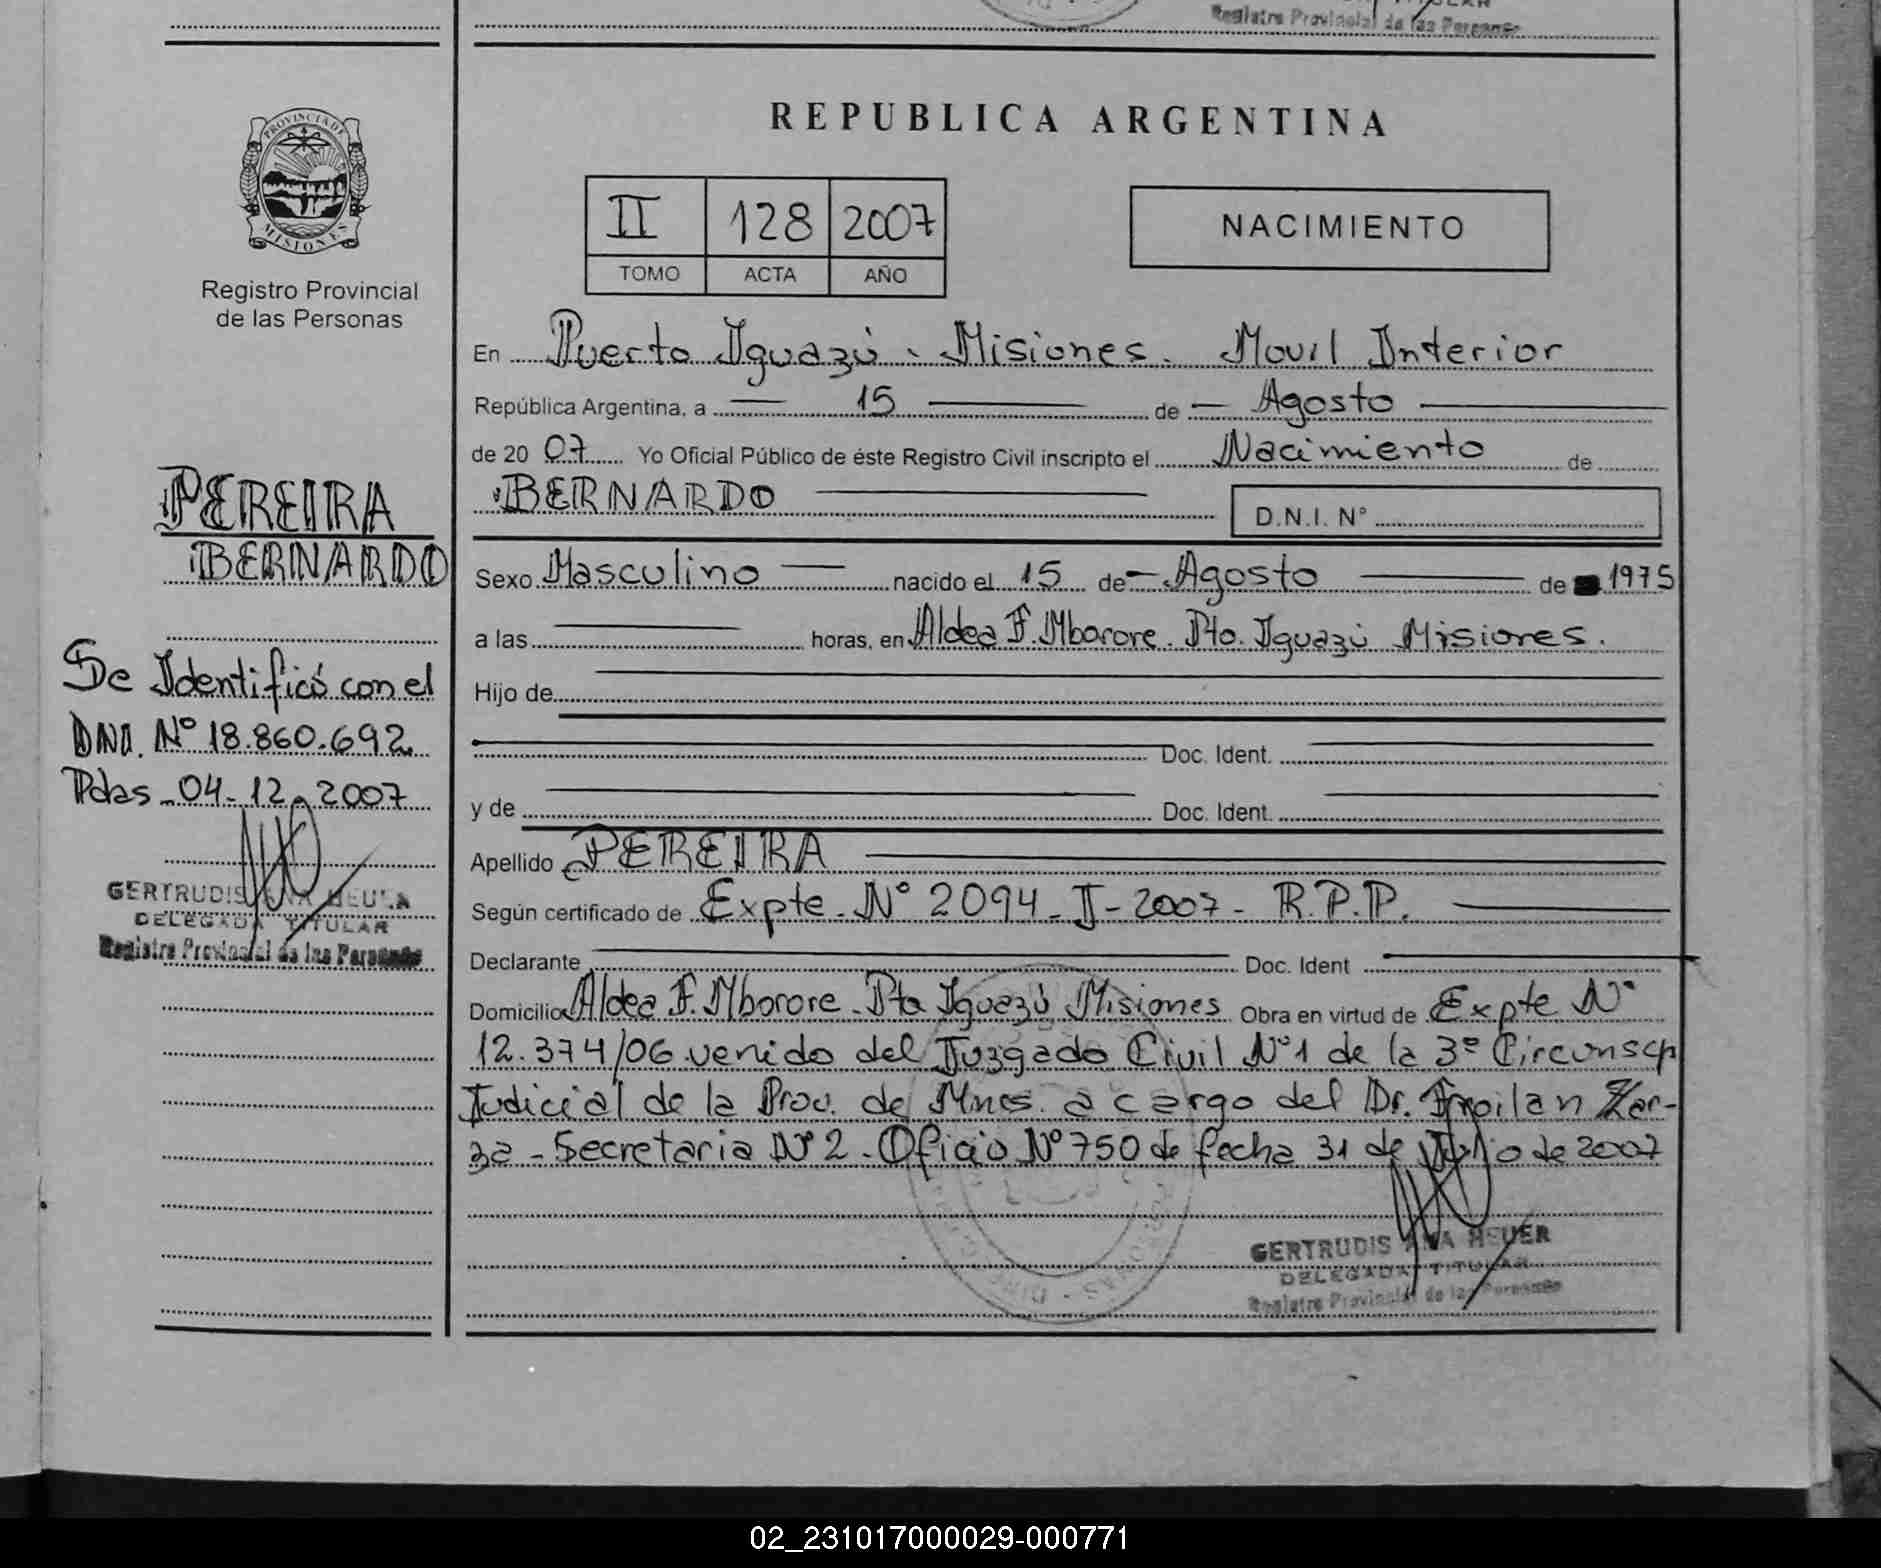 Registro Provincial de las Personas
PROVINCIA DE
MISIONES
Registro Provincial
de las Personas
PEREIRA
BERNARDO
Se Identificó con el
DNI. Nº 18.860.692
Pdas - 04-12-2007
GERTRUDIS ANA HEUER
DELEGADA TITULAR
Registro Provincial de las Personas
REPUBLICA ARGENTINA
II 128 2007
TOMO ACTA AÑO
NACIMIENTO
En Puerto Iguazú - Misiones. Movil Interior
República Argentina, a — 15 — de — Agosto —
de 20 07 Yo Oficial Público de éste Registro Civil inscripto el Nacimiento de
BERNARDO — D.N.I. N°
Sexo Masculino — nacido el 15 de — Agosto — de 1975
a las — horas, en Aldea F. Mborore. Pto. Iguazú Misiones.
Hijo de —
— Doc. Ident. —
y de — Doc. Ident. —
Apellido PEREIRA —
Según certificado de Expte. Nº 2094-J-2007- R.P.P. —
Declarante — Doc. Ident —
Domicilio Aldea F. Mborore - Pto Iguazú Misiones Obra en virtud de Expte Nº
12.374/06 venido del Juzgado Civil Nº1 de la 3º Circunscp
Judicial de la Prov. de Mnes. a cargo del Dr. Froilan Zar-
za - Secretaria Nº 2 - Oficio Nº 750 de fecha 31 de Julio de 2007
GERTRUDIS ANA HEUER
DELEGADA TITULAR
Registro Provincial de las Personas
02_231017000029-000771